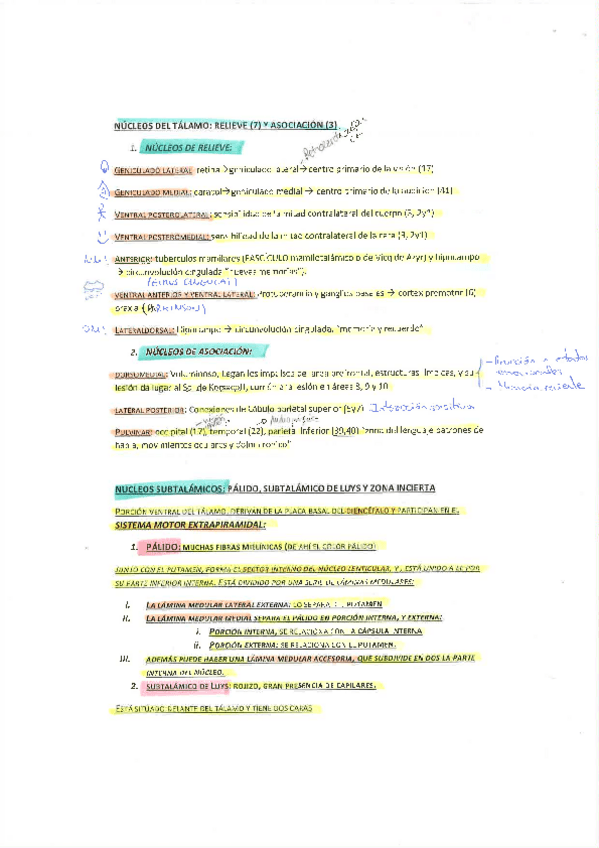 NÚCLEOS DEL TÁLAMO: RELIEVE (7) Y ASOCIACIÓN (3)
1. NÚCLEOS DE RELIEVE:
GENICULADO LATERAL: retina → geniculado lateral → centro primario de la visión (17)
GENICULADO MEDIAL: caracol → geniculado medial → centro primario de la audición (41)
VENTRAL POSTEROLATERAL: sensibilidad de la mitad contralateral del cuerpo (3, 2y1)
VENTRAL POSTEROMEDIAL: sensibilidad de la mitad contralateral de la cara (3, 2y1)
ANTERIOR: tuberculos mamilares (FASCÍCULO mamilotalámico o de Vicq de Azyr) y hipocampo
→ circunvolución cingulada "nuevas memorias").
VENTRAL ANTERIOR Y VENTRAL LATERAL: Protuberancia y ganglios basales → cortex premotor (6)
praxia (PARKINSON)
LATERODORSAL: Hipocampo → circunvolución cingulada. "memoria y recuerdo"
2. NÚCLEOS DE ASOCIACIÓN:
DORSOMEDIAL: Voluminoso, llegan los impulsos de área prefrontal, estructuras límbicas, y su
lesión da lugar al Sd. de Korsakoff, con lesión en áreas 8, 9 y 10
emocionales
Memoria reciente
LATERAL POSTERIOR: Conexiones de Lóbulo parietal superior (5y7)
PULVINAR: occipital (17), temporal (22), parietal inferior (39,40) "zona del lenguaje patrones de
habla, movimientos oculares y dolor cronico"
NUCLEOS SUBTALÁMICOS: PÁLIDO, SUBTALÁMICO DE LUYS Y ZONA INCIERTA
PORCIÓN VENTRAL DEL TÁLAMO, DERIVAN DE LA PLACA BASAL DEL DIENCÉFALO Y PARTICIPAN EN EL
SISTEMA MOTOR EXTRAPIRAMIDAL:
1. PÁLIDO: MUCHAS FIBRAS MIELÍNICAS (DE AHÍ EL COLOR PÁLIDO)
JUNTO CON EL PUTAMEN, FORMA EL SECTOR INTERNO DEL NÚCLEO LENTICULAR, Y ESTÁ UNIDO A ÉL POR
SU PARTE INFERIOR INTERNA. ESTÁ DIVIDIDO POR UNA SERIE DE LÁMINAS MEDULARES:
I. LA LÁMINA MEDULAR LATERAL EXTERNA: LO SEPARA DEL PUTAMEN
II. LA LÁMINA MEDULAR MEDIAL SEPARA EL PÁLIDO EN PORCIÓN INTERNA, Y EXTERNA:
i. PORCIÓN INTERNA, SE RELACIONA CON LA CÁPSULA INTERNA
ii. PORCIÓN EXTERNA: SE RELACIONA CON EL PUTAMEN.
III. ADEMÁS PUEDE HABER UNA LÁMINA MEDULAR ACCESORIA, QUE SUBDIVIDE EN DOS LA PARTE
INTERNA DEL NÚCLEO.
2. SUBTALÁMICO DE LUYS: ROJIZO, GRAN PRESENCIA DE CAPILARES.
ESTÁ SITUADO DELANTE DEL TÁLAMO Y TIENE DOS CARAS